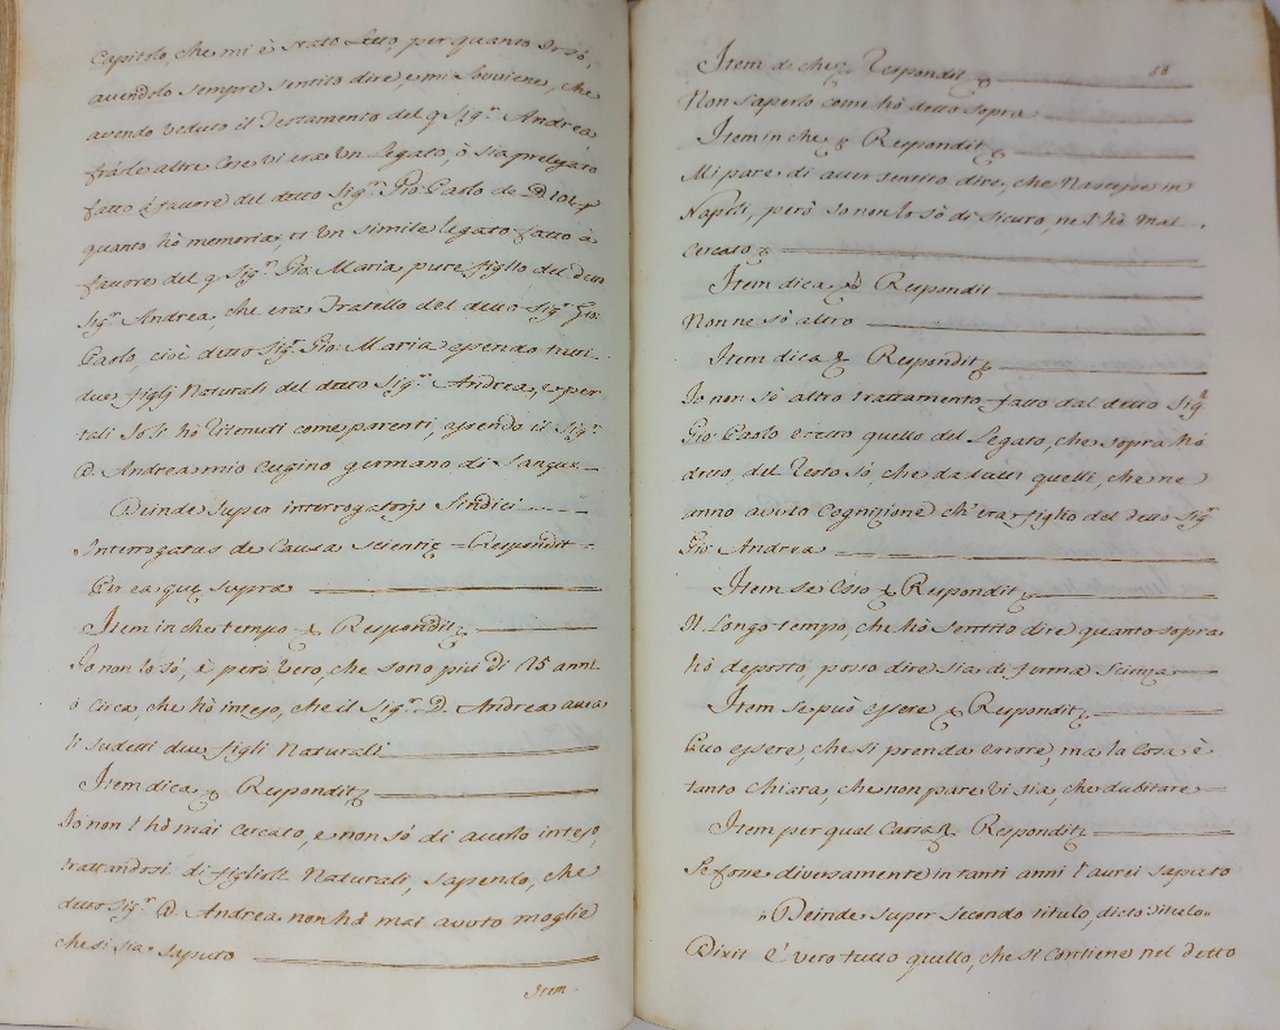 Capitolo, che mi è stato letto, per quanto Io sò,
avendolo sempre sentito dire, e mi souviene, che
avendo veduto il Testamento del q Sig.r Andrea
frà le altre cose vi era un Legato, ò sia prelegato
fatto à favore del detto Sig.r Gio: Paolo da D.
quanto hò memoria, et un simile legato fatto à
favore del q Sig.r Gio: Maria pure figlio del detto
Sig.r Andrea, che era Fratello del detto Sig.r Gio:
Paolo, cioè detto Sig.r Gio: Maria essendo tutti
due figlj Naturali del detto Sig.r Andrea, e per
tali Io li hò ritenuti come parenti, essendo il Sig.r
D. Andrea mio cugino germano di sangue
Deinde super interrogatorijs Sindici
Interrogatus de Causa scientię Respondit
Per ea quę supra
Item in che tempo & Respondit
Io non lo sò, è però vero, che sono più di 25 anni
ò circa, che hò inteso, che il Sig.r D. Andrea aveva
li sudetti due figli Naturali
Item dica & Respondit
Io non l'hò mai cercato, e non sò di averlo inteso,
trattandosi di figlioli Naturali, sapendo, che
detto Sig.r D. Andrea non hà mai avuto moglie
che si sia saputo
Item
58
Item di che & Respondit
Non saperlo come hò detto sopra
Item in che & Respondit
Mi pare di aver sentito dire, che Nascesse in
Napoli, però Io non lo sò di sicuro, ne l'hò mai
cercato
Item dica & Respondit
Non ne sò altro
Item dica & Respondit
Io non sò altro trattamento fatto dal detto Sig.r
Gio: Paolo eccetto quello del Legato, che sopra hò
detto, del resto sò, che da tutti quelli, che ne
anno avuto Cognizione ch'era figlio del detto Sig.r
Gio: Andrea
Item se Esso & Respondit
Il Longo tempo, che hò sentito dire quanto sopra
hò deposto, posso dire sia di ferma scienza
Item se può essere & Respondit
Può essere, che si prenda errore, ma la cosa è
tanto chiara, che non pare vi sia, che dubitare
Item per qual Causa & Respondit
Se fosse diversamente in tanti anni l'aurei saputo
Deinde super secondo titulo, dicto Titulo
Dixit È vero tutto quello, che si contiene nel detto